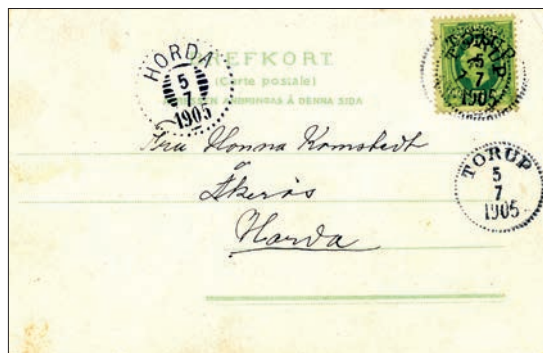 BREFKORT
(Carte postale)
ADRESSEN ANBRINGAS Å DENNA SIDA
HORDA
5
7
1905
TORUP
5
7
1905
TORUP
5
7
1905
Fru Honna Komstedt
Åkerös
Horda